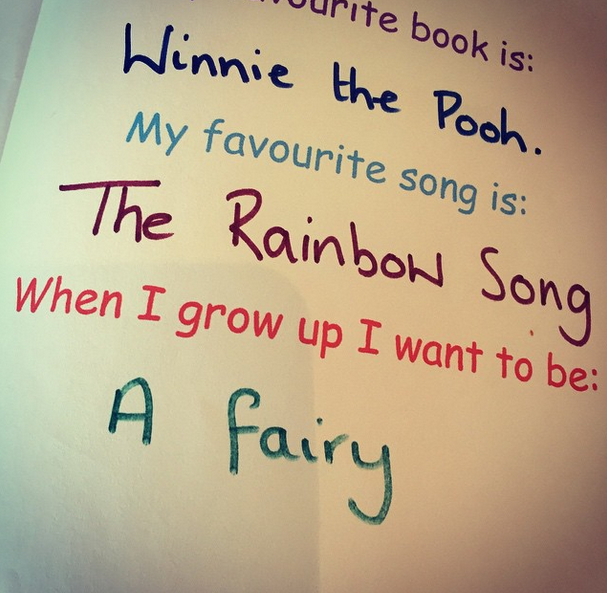 book is:
Winnie the Pooh.
My favourite song is:
The Rainbow Song
When I grow up I want to be:
A fairy